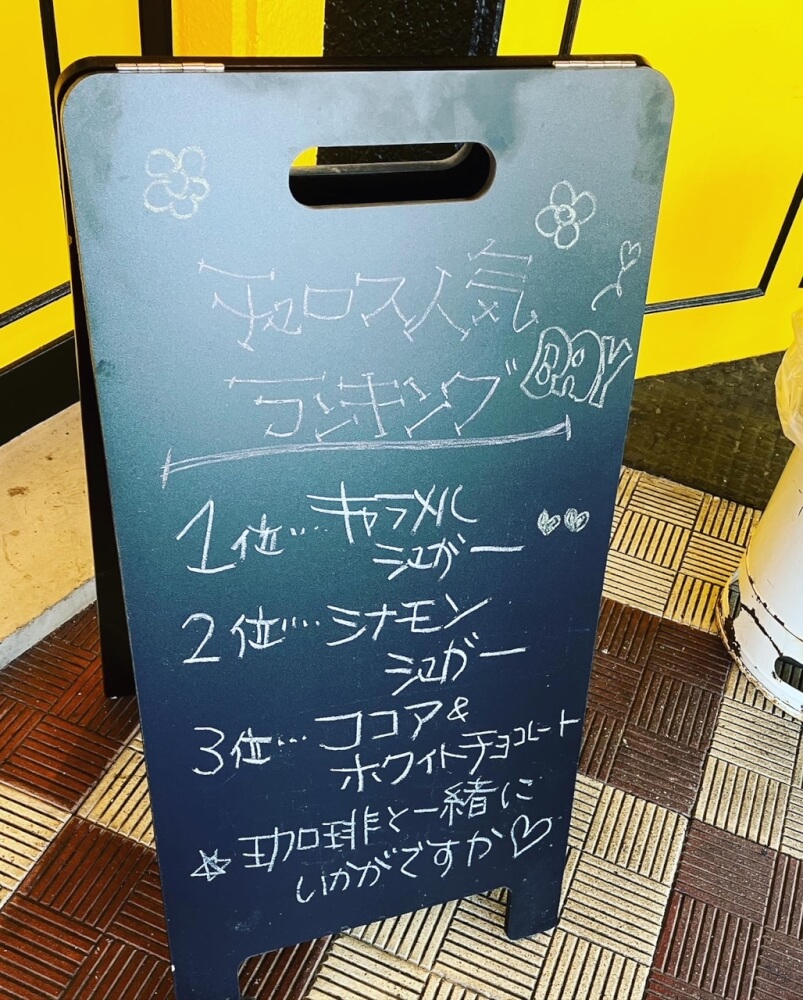 チュロス人気
ランキング
BAY
1位…キャラメル
シュガー
2位…シナモン
シュガー
3位…ココア&
ホワイトチョコレート
☆珈琲と一緒に
いかがですか♡